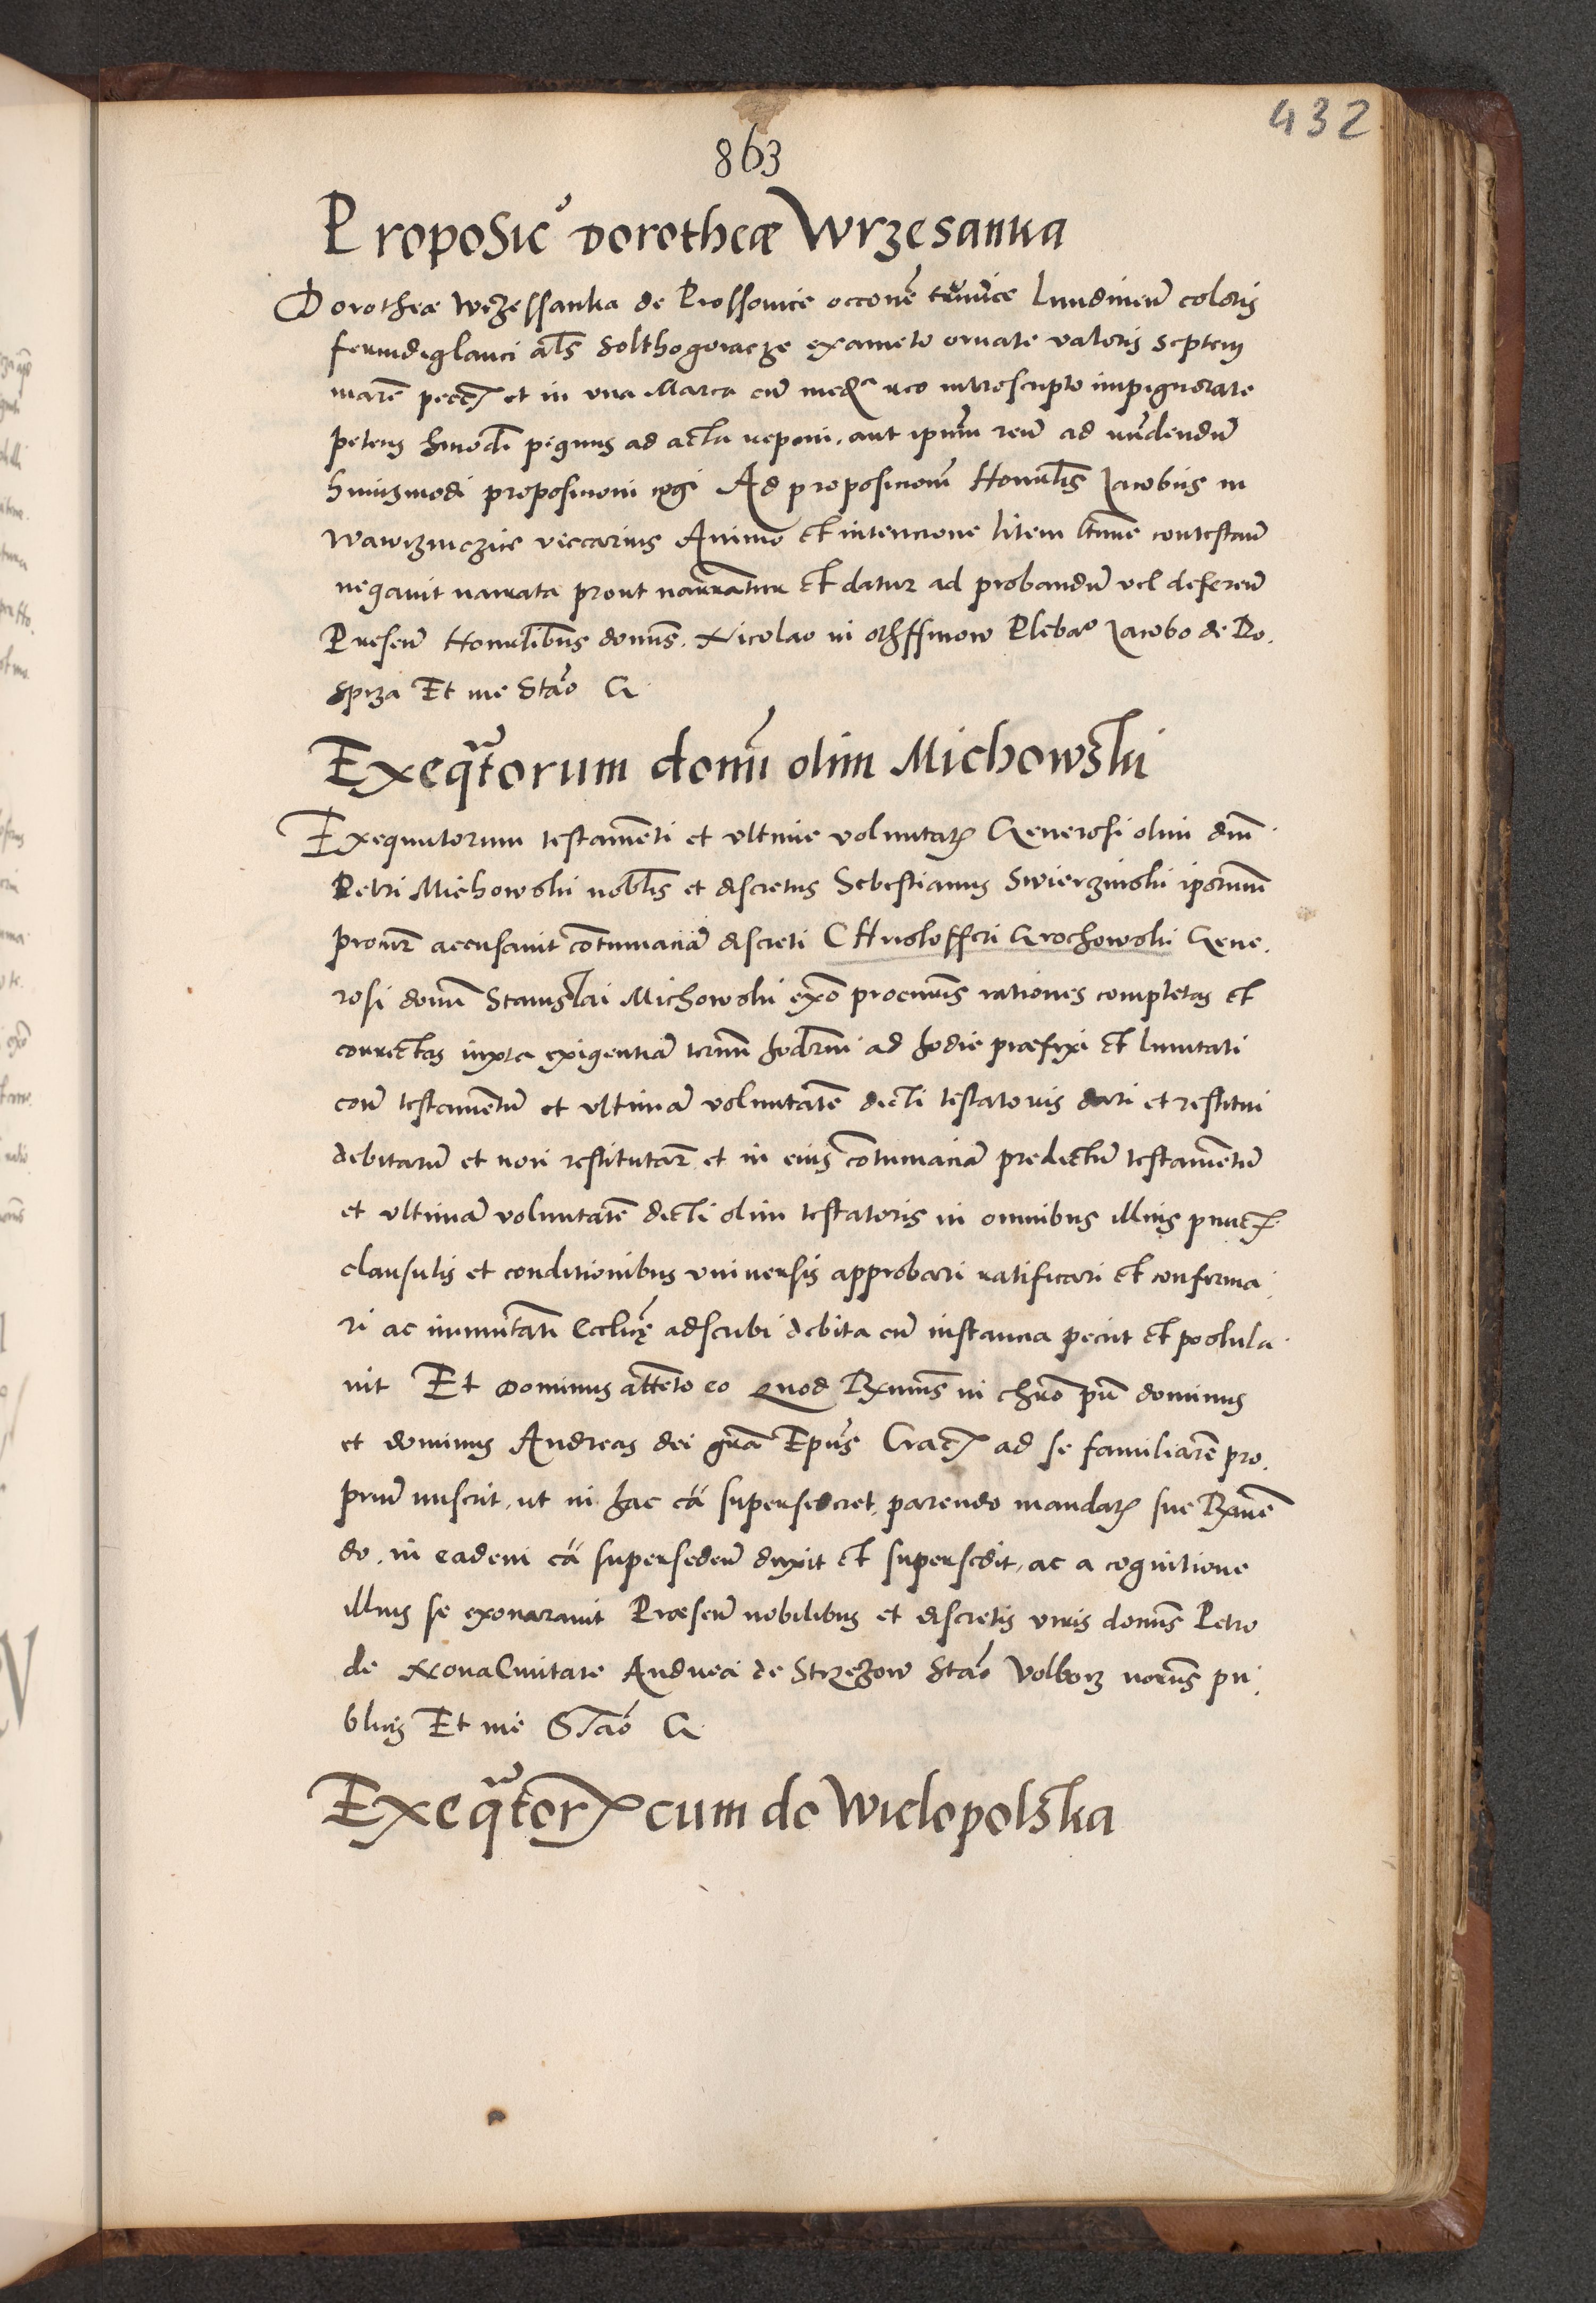 432
863
Proposicō Dorotheæ Wrzesanka
Dorotheæ Wrzessanka de Prossovice occōnē tunice Lundineū coloris
ferindiglauci al̄s Solthogoracze exameto ornate valoris septem
marē pecc et in una Marca cū medᵃ reo introscripto impignorate
petens hmōdi pignus ad acta reponi, aut ipsum reū ad rn̄dendū
huiusmodi proposicioni cogi Ad proposicionē Honorabl̄is Jacobus in
Wawrzinczice viccarius Animo et intencione litem contestan̄
negavit narrata prout narrantur Et datur ad probandū vel deferen̄
Presen̄ Honorabilibus domīs. Nicolao in Plebāo Jacobo de Po.
spiza Et me Stāo G
Exeqūtorum domī olim Michowski
Exequutorum testamēti et ultime voluntatis Generosi olim dnī
Petri Michowski nobīlis et discretus Sebestianus Swierzinski ipsorum
procur̄ accusavit cōtumaciā discreti CHristofferi Grochowski Gene.
rosi domī Stanislai Michowski exō procur̄is rationes completas et
correctas iuxta exigentiā termī hodierni ad hodie præfixi Et limitati
corā testamentū et ultimā voluntatē dicti testatoris dari et restitui
debitarū et non restitutar̄ et in eius cōtumaciā predictū testamentū
et ultimā voluntatē dicti olim testatoris in omnibus illius punctis
clausulis et conditionibus universis approbari ratificari Et confirma
ri ac immunitati Ecclicę adscribi debita cū instancia peciit Et postula
vit Et Dominus attēto eo Quod Rx̄mus in chrō pr̄ dominus
et dominus Andreas dei grā Epūs Crac ad se familiarē pro.
prium miserit, ut in hac cā supersederet, parendo mandatis sue Rx̄me
do. in eadem cā superseden̄ duxit Et supersedit, ac a cognitione
illius se exonaravit Præsen̄ nobilibus et discretis viris domīs Petro
de NovaCivitate Andrea de Strzezow Stāo Volborz notāīs pu
blicis Et me STāo G
Exeqūtorum cum do Wielopolska